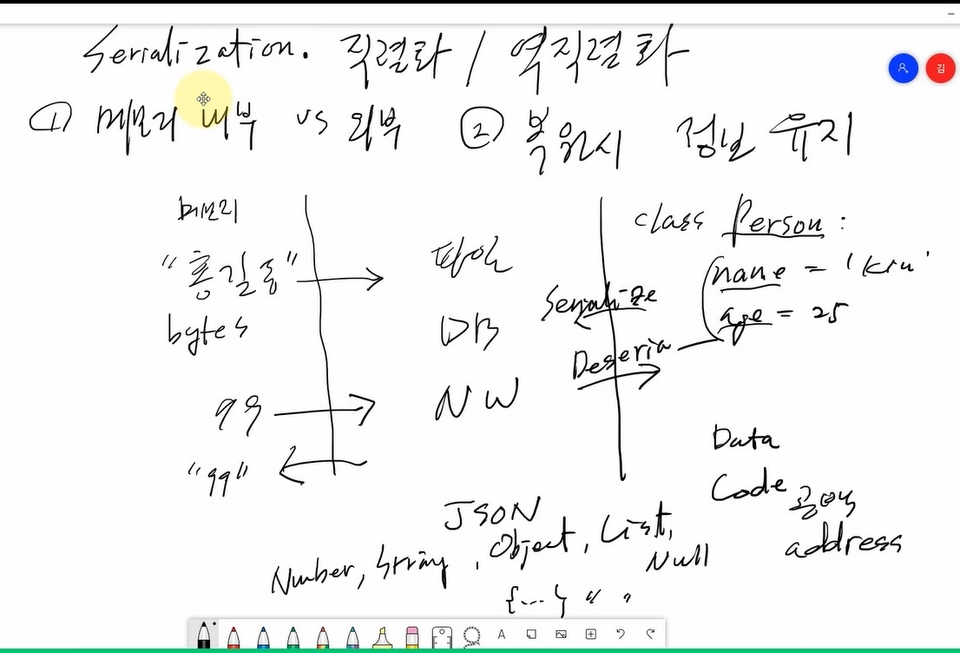 Serialization. 직렬화 / 역직렬화
① 메모리 내부 vs 외부 ② 복원시 정보 유지
메모리
"홍길동"
bytes
99
"99"
파일
DB
NW
Serialize
Deseria
class Person :
name = 'Kim'
age = 25
Data
Code
address
JSON
Number, String, Object, List,
Null
{...} " "
김
A